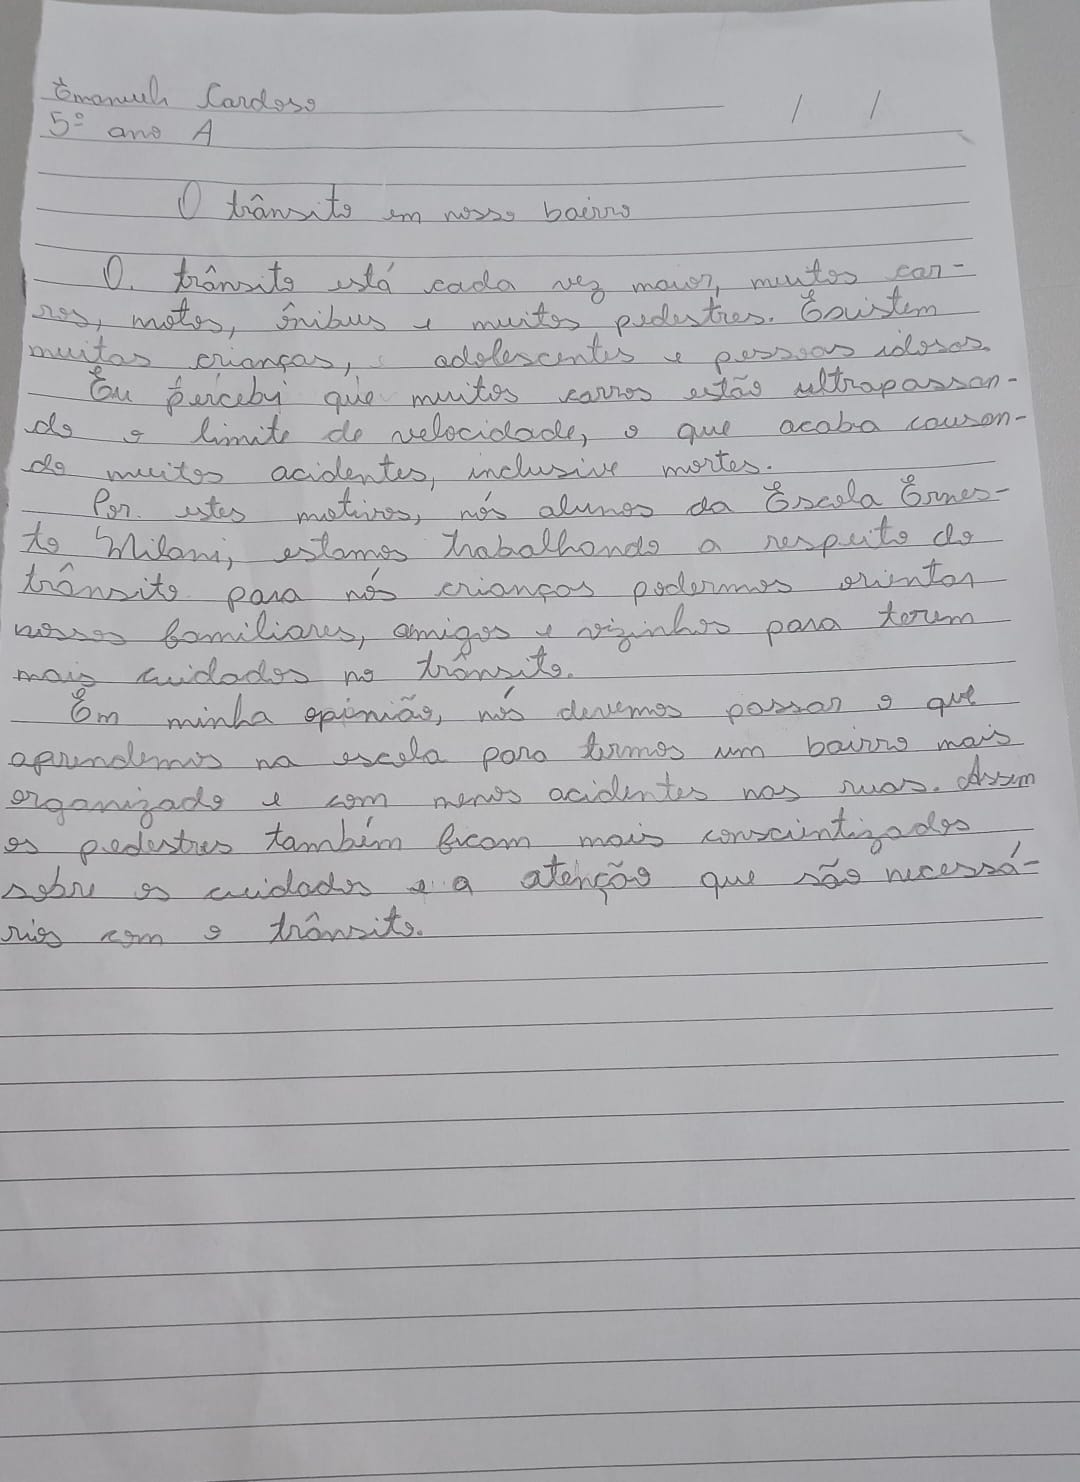 Emanueli Cardoso / /
5º ano A
O trânsito em nosso bairro
O trânsito está cada vez maior, muitos car-
ros, motos, ônibus e muitos pedestres. Existem
muitas crianças, adolescentes e pessoas idosas.
Eu percebi que muitos carros estão ultrapassan-
do o limite de velocidade, o que acaba causan-
do muitos acidentes, inclusive mortes.
Por estes motivos, nós alunos da Escola Ernes-
to Milani, estamos trabalhando a respeito do
trânsito para nós crianças podermos orientar
nossos familiares, amigos e vizinhos para terem
mais cuidados no trânsito.
Em minha opinião, nós devemos passar o que
aprendemos na escola para termos um bairro mais
organizado e com menos acidentes nas ruas. Assim
os pedestres também ficam mais conscientizados
sobre os cuidados e a atenção que são necessá-
rios com o trânsito.